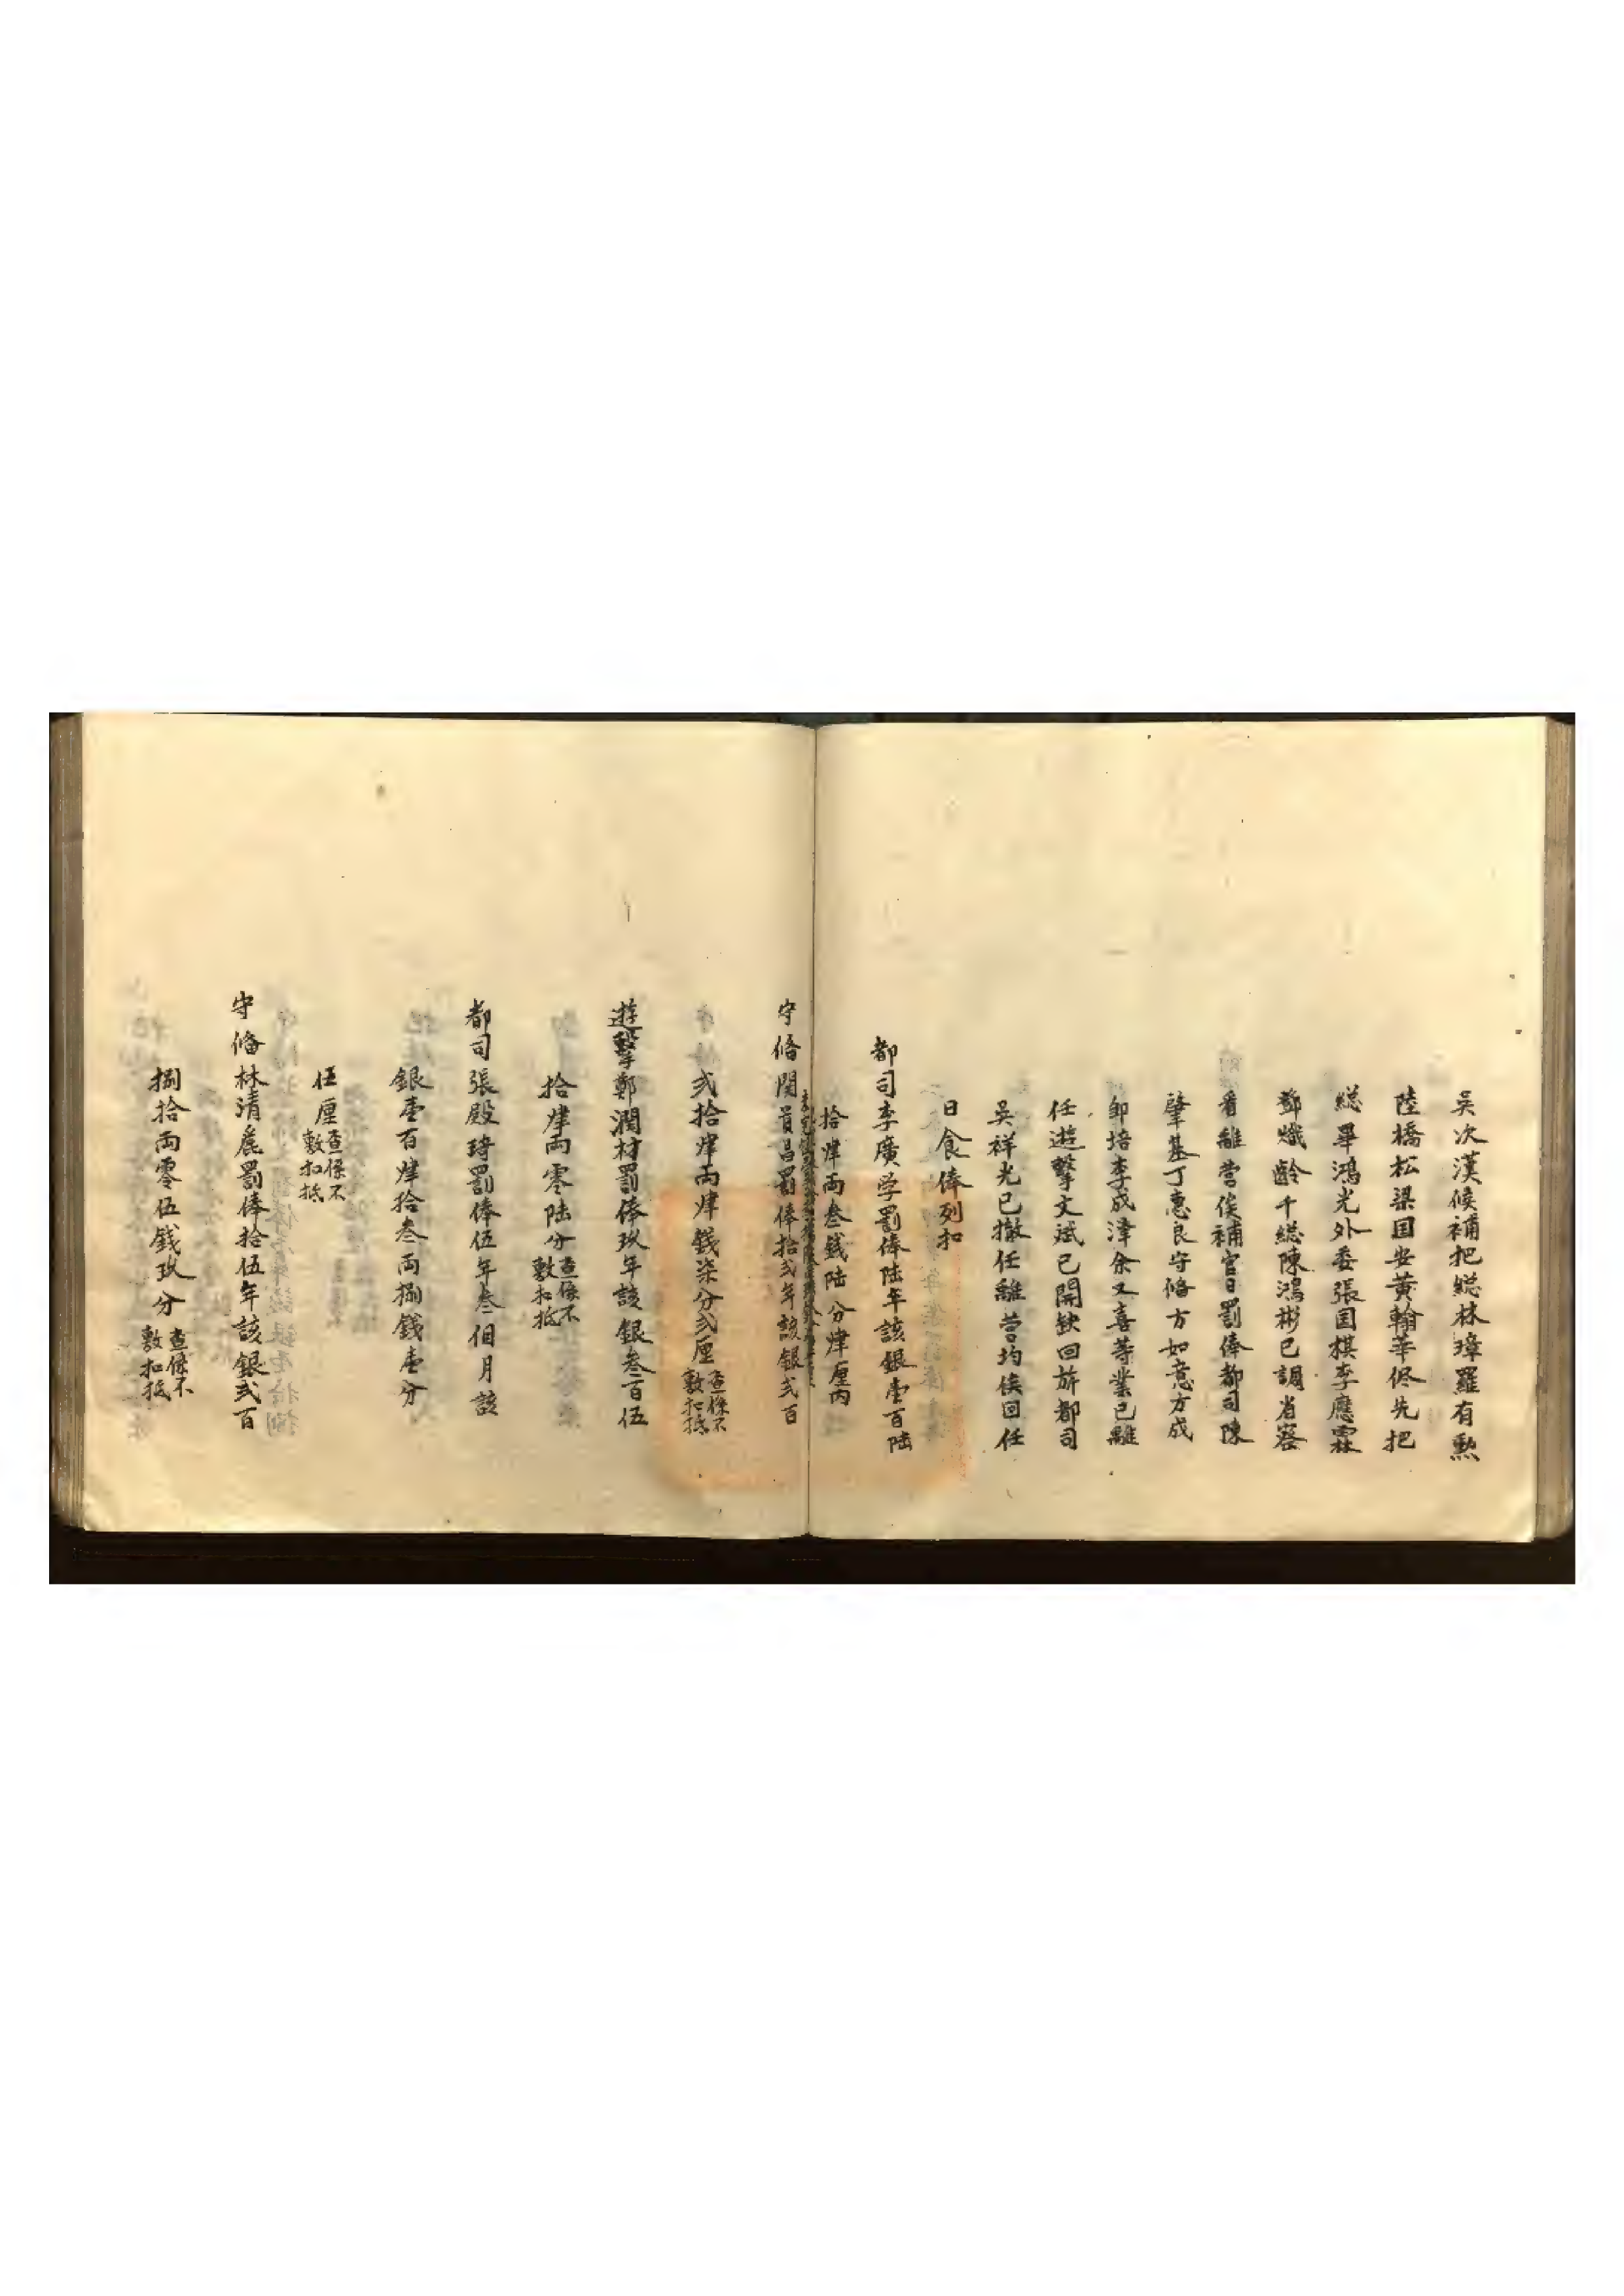 吳次漢候補把総林璋羅有勲
陸橋松梁国安黄翰華侭先把
総畢鴻光外委張国棋李應霖
鄧熾齡千総陳鴻彬已調省察
看離营俟補官日罰俸都司陳
肇基丁惠良守俻方如意方成
邹培李成泽余又喜等業已離
任遊擊文斌已開缺回旂都司
吳祥光已撤任離营均俟回任
日食俸列扣
都司李廣学罰俸陸年該銀壹百陸
拾肆両叁銭陸分肆厘内
守俻関昌罰俸拾弍年該銀弍百
弍拾肆両肆錢柒分弍厘查係不敷扣抵
遊擊鄭潤材罰俸玖年該銀叁百伍
拾肆両零陸分查係不敷扣抵
都司張殿琦罰俸伍年叁佀月該
銀壹百肆拾叁両捌錢壹分
伍厘查係不敷扣抵
守俻林清罰俸拾伍年該銀弍百
捌拾両零伍錢玖分查係不敷扣抵